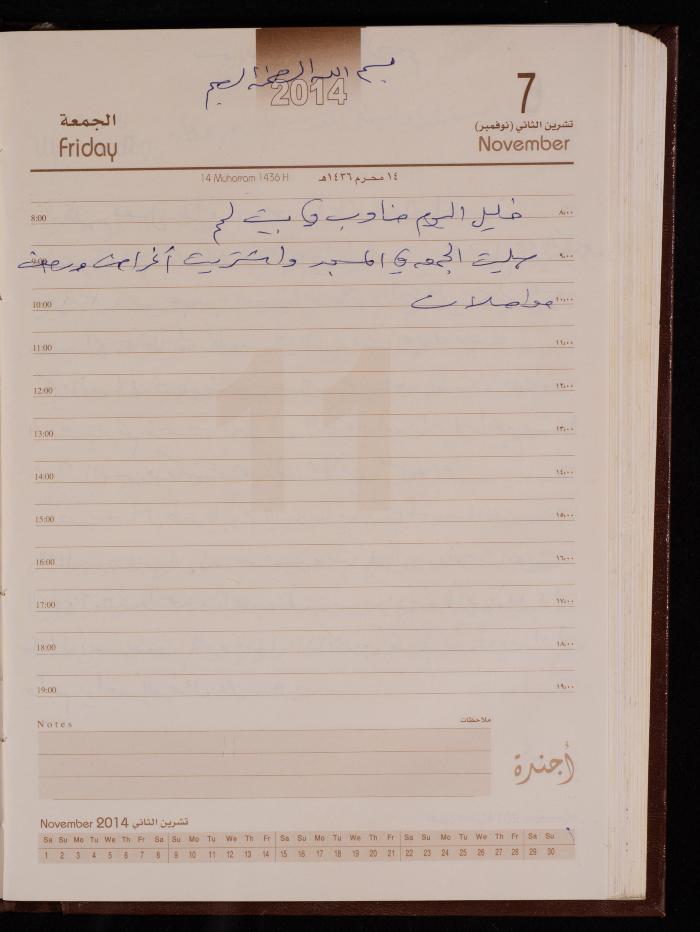 بسم الله الرحمن الرحيم
2014
7
الجمعة
تشرين الثاني (نوفمبر)
Friday
November
14 Muharram 1436 H ١٤ محرم ١٤٣٦هـ
8:00 خليل اليوم مناوب في بيت لحم ٨:٠٠
9:00 صليت الجمعه في المسجد واشتريت أغراض ورصدت ٩:٠٠
10:00 مواصلات ١٠:٠٠
11
11:00 ١١:٠٠
12:00 ١٢:٠٠
13:00 ١٣:٠٠
14:00 ١٤:٠٠
15:00 ١٥:٠٠
16:00 ١٦:٠٠
17:00 ١٧:٠٠
18:00 ١٨:٠٠
19:00 ١٩:٠٠
Notes ملاحظات
أجندة
November 2014 تشرين الثاني
Sa Su Mo Tu We Th Fr Sa Su Mo Tu We Th Fr Sa Su Mo Tu We Th Fr Sa Su Mo Tu We Th Fr Sa Su
1 2 3 4 5 6 7 8 9 10 11 12 13 14 15 16 17 18 19 20 21 22 23 24 25 26 27 28 29 30